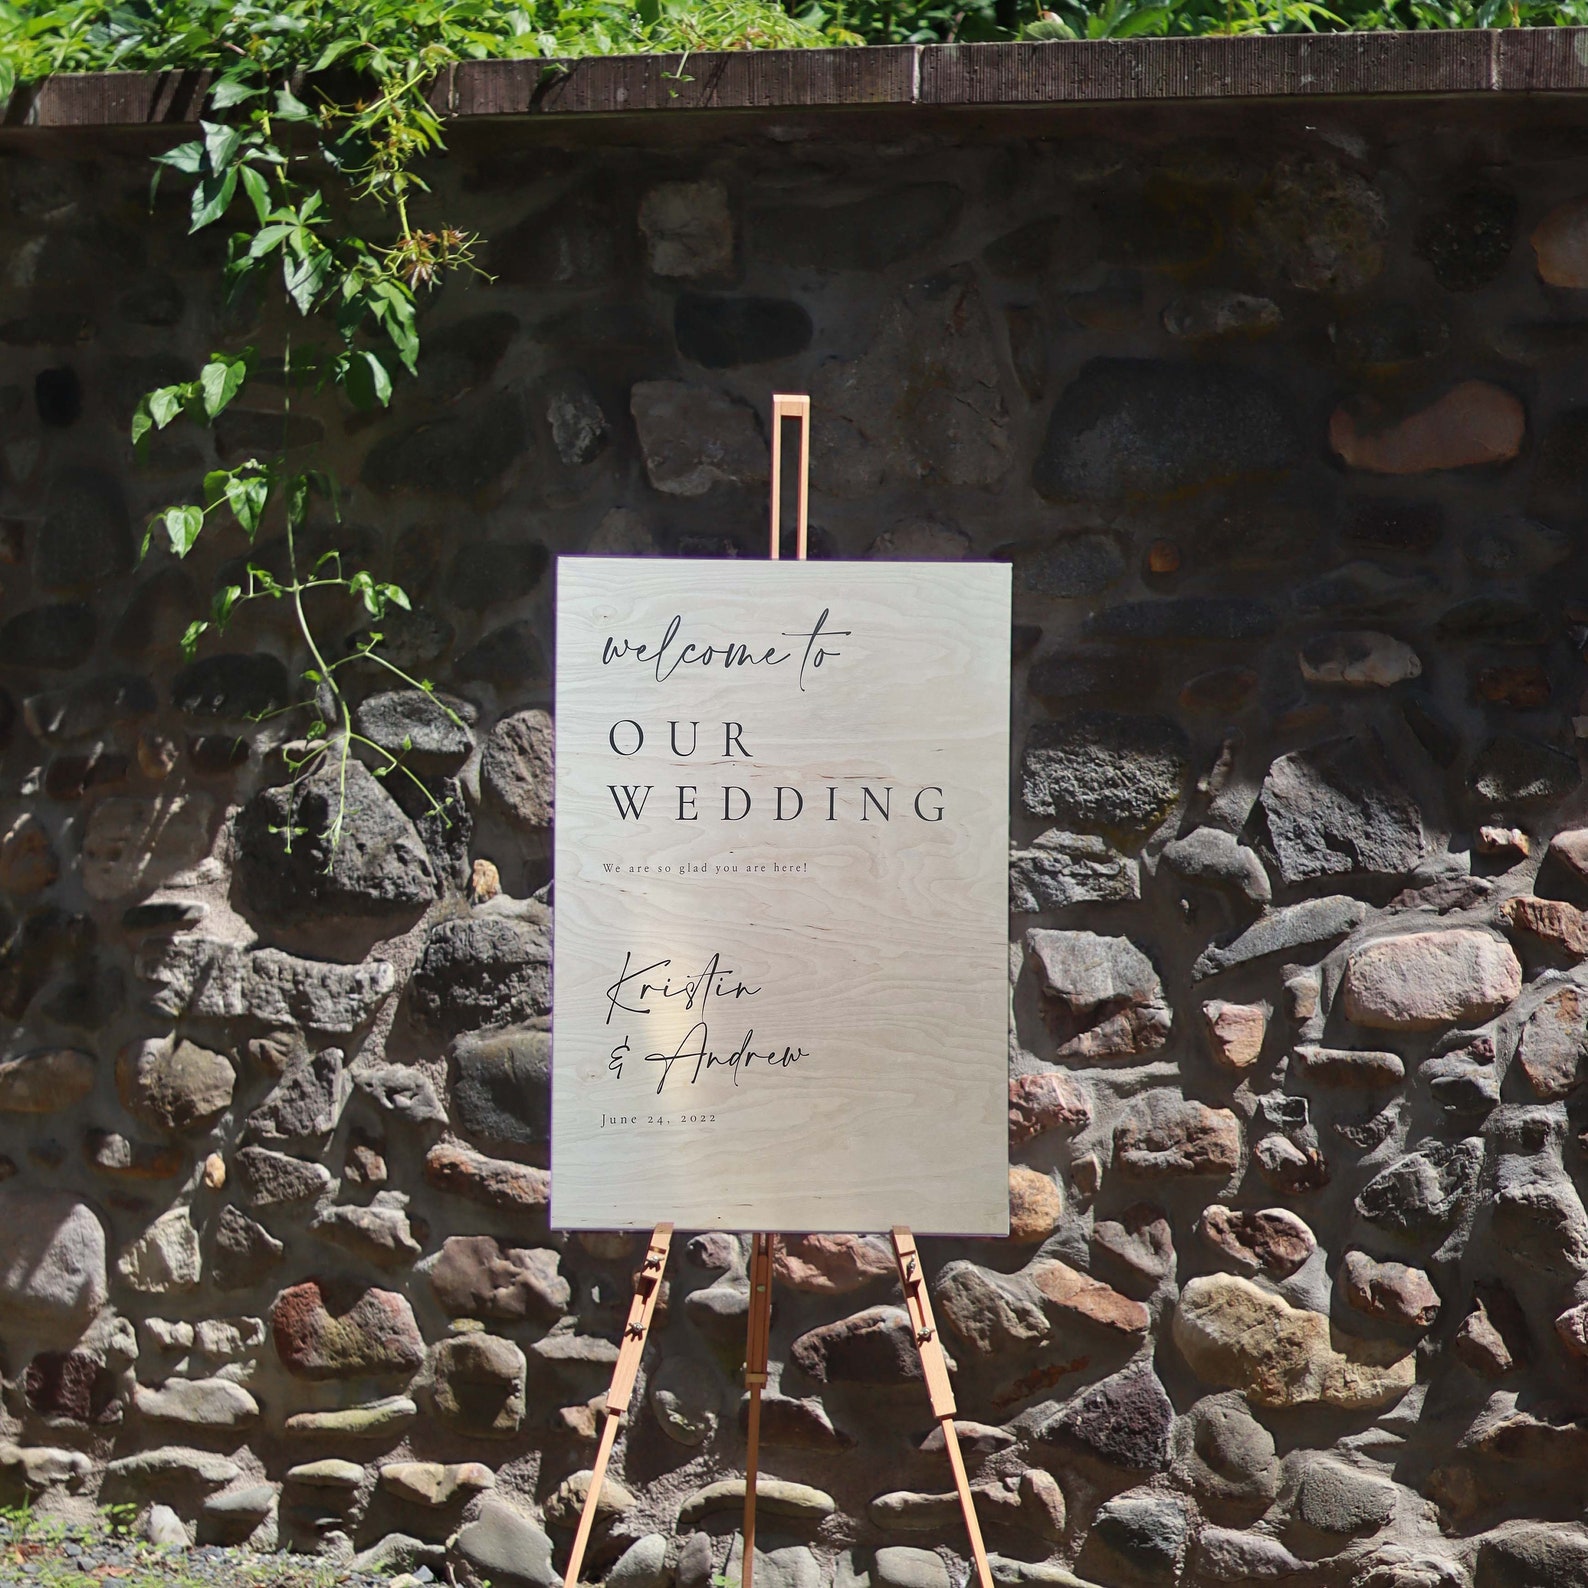 welcome to
OUR
WEDDING
We are so glad you are here!
Kristin
& Andrew
June 24, 2022